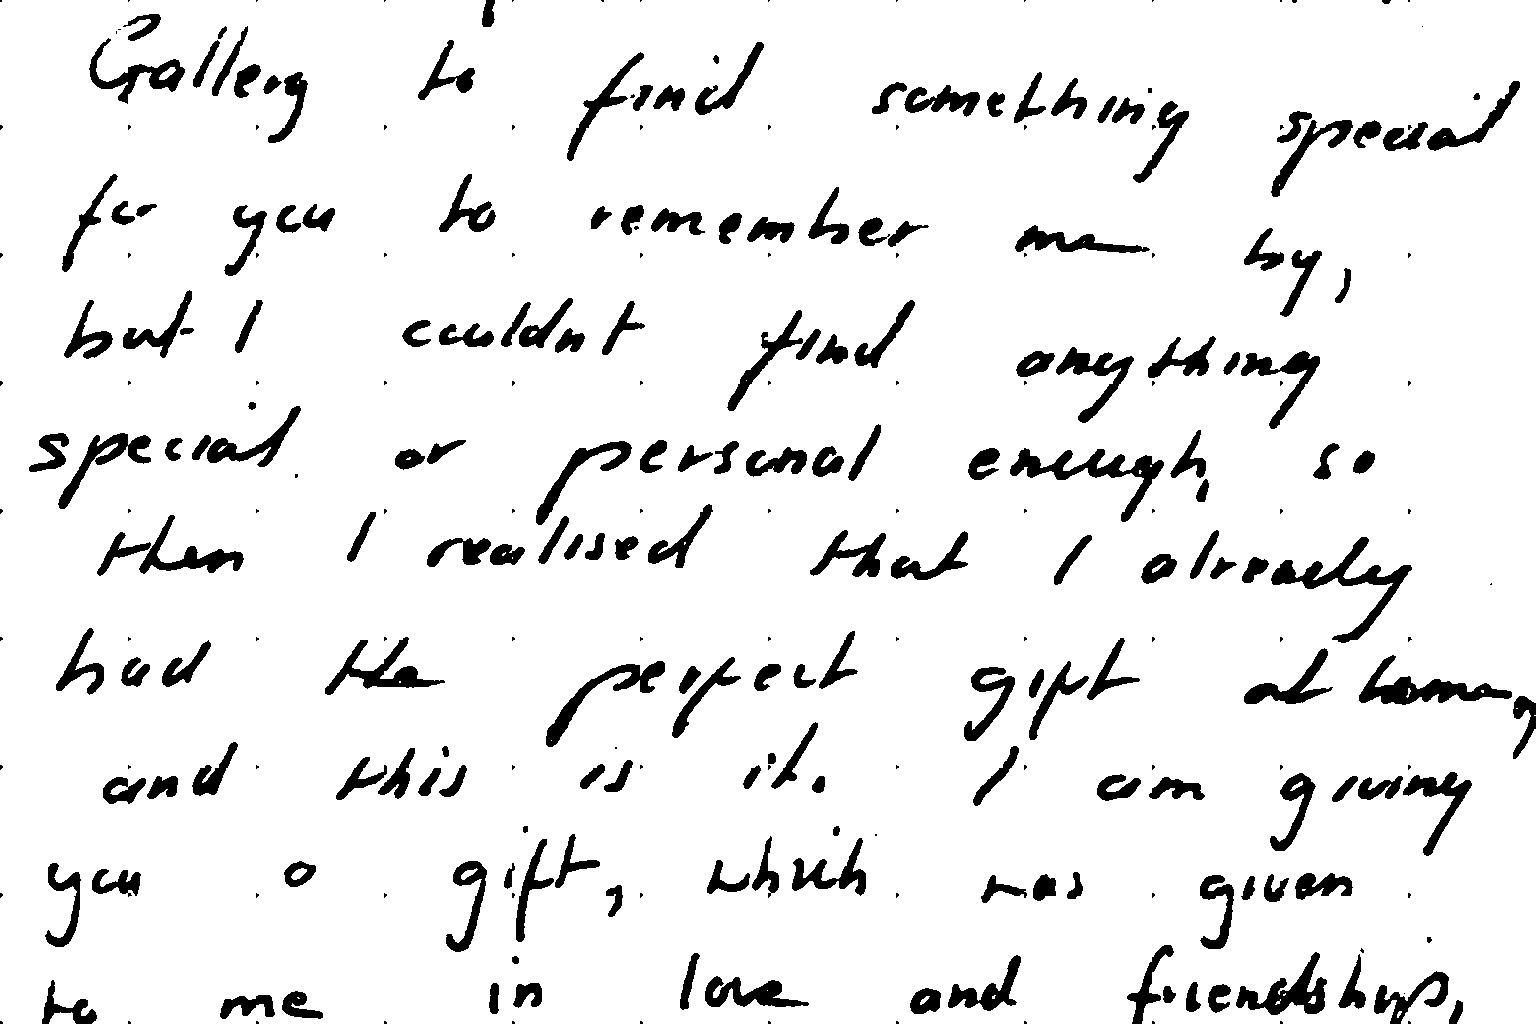 Gallery to find something special
for you to remember me by,
but I couldnt find anything
special or personal enough, so
then I realised that I already
had the perfect gift at home,
and this is it. I am giving
you a gift, which was given
to me in love and friendship,